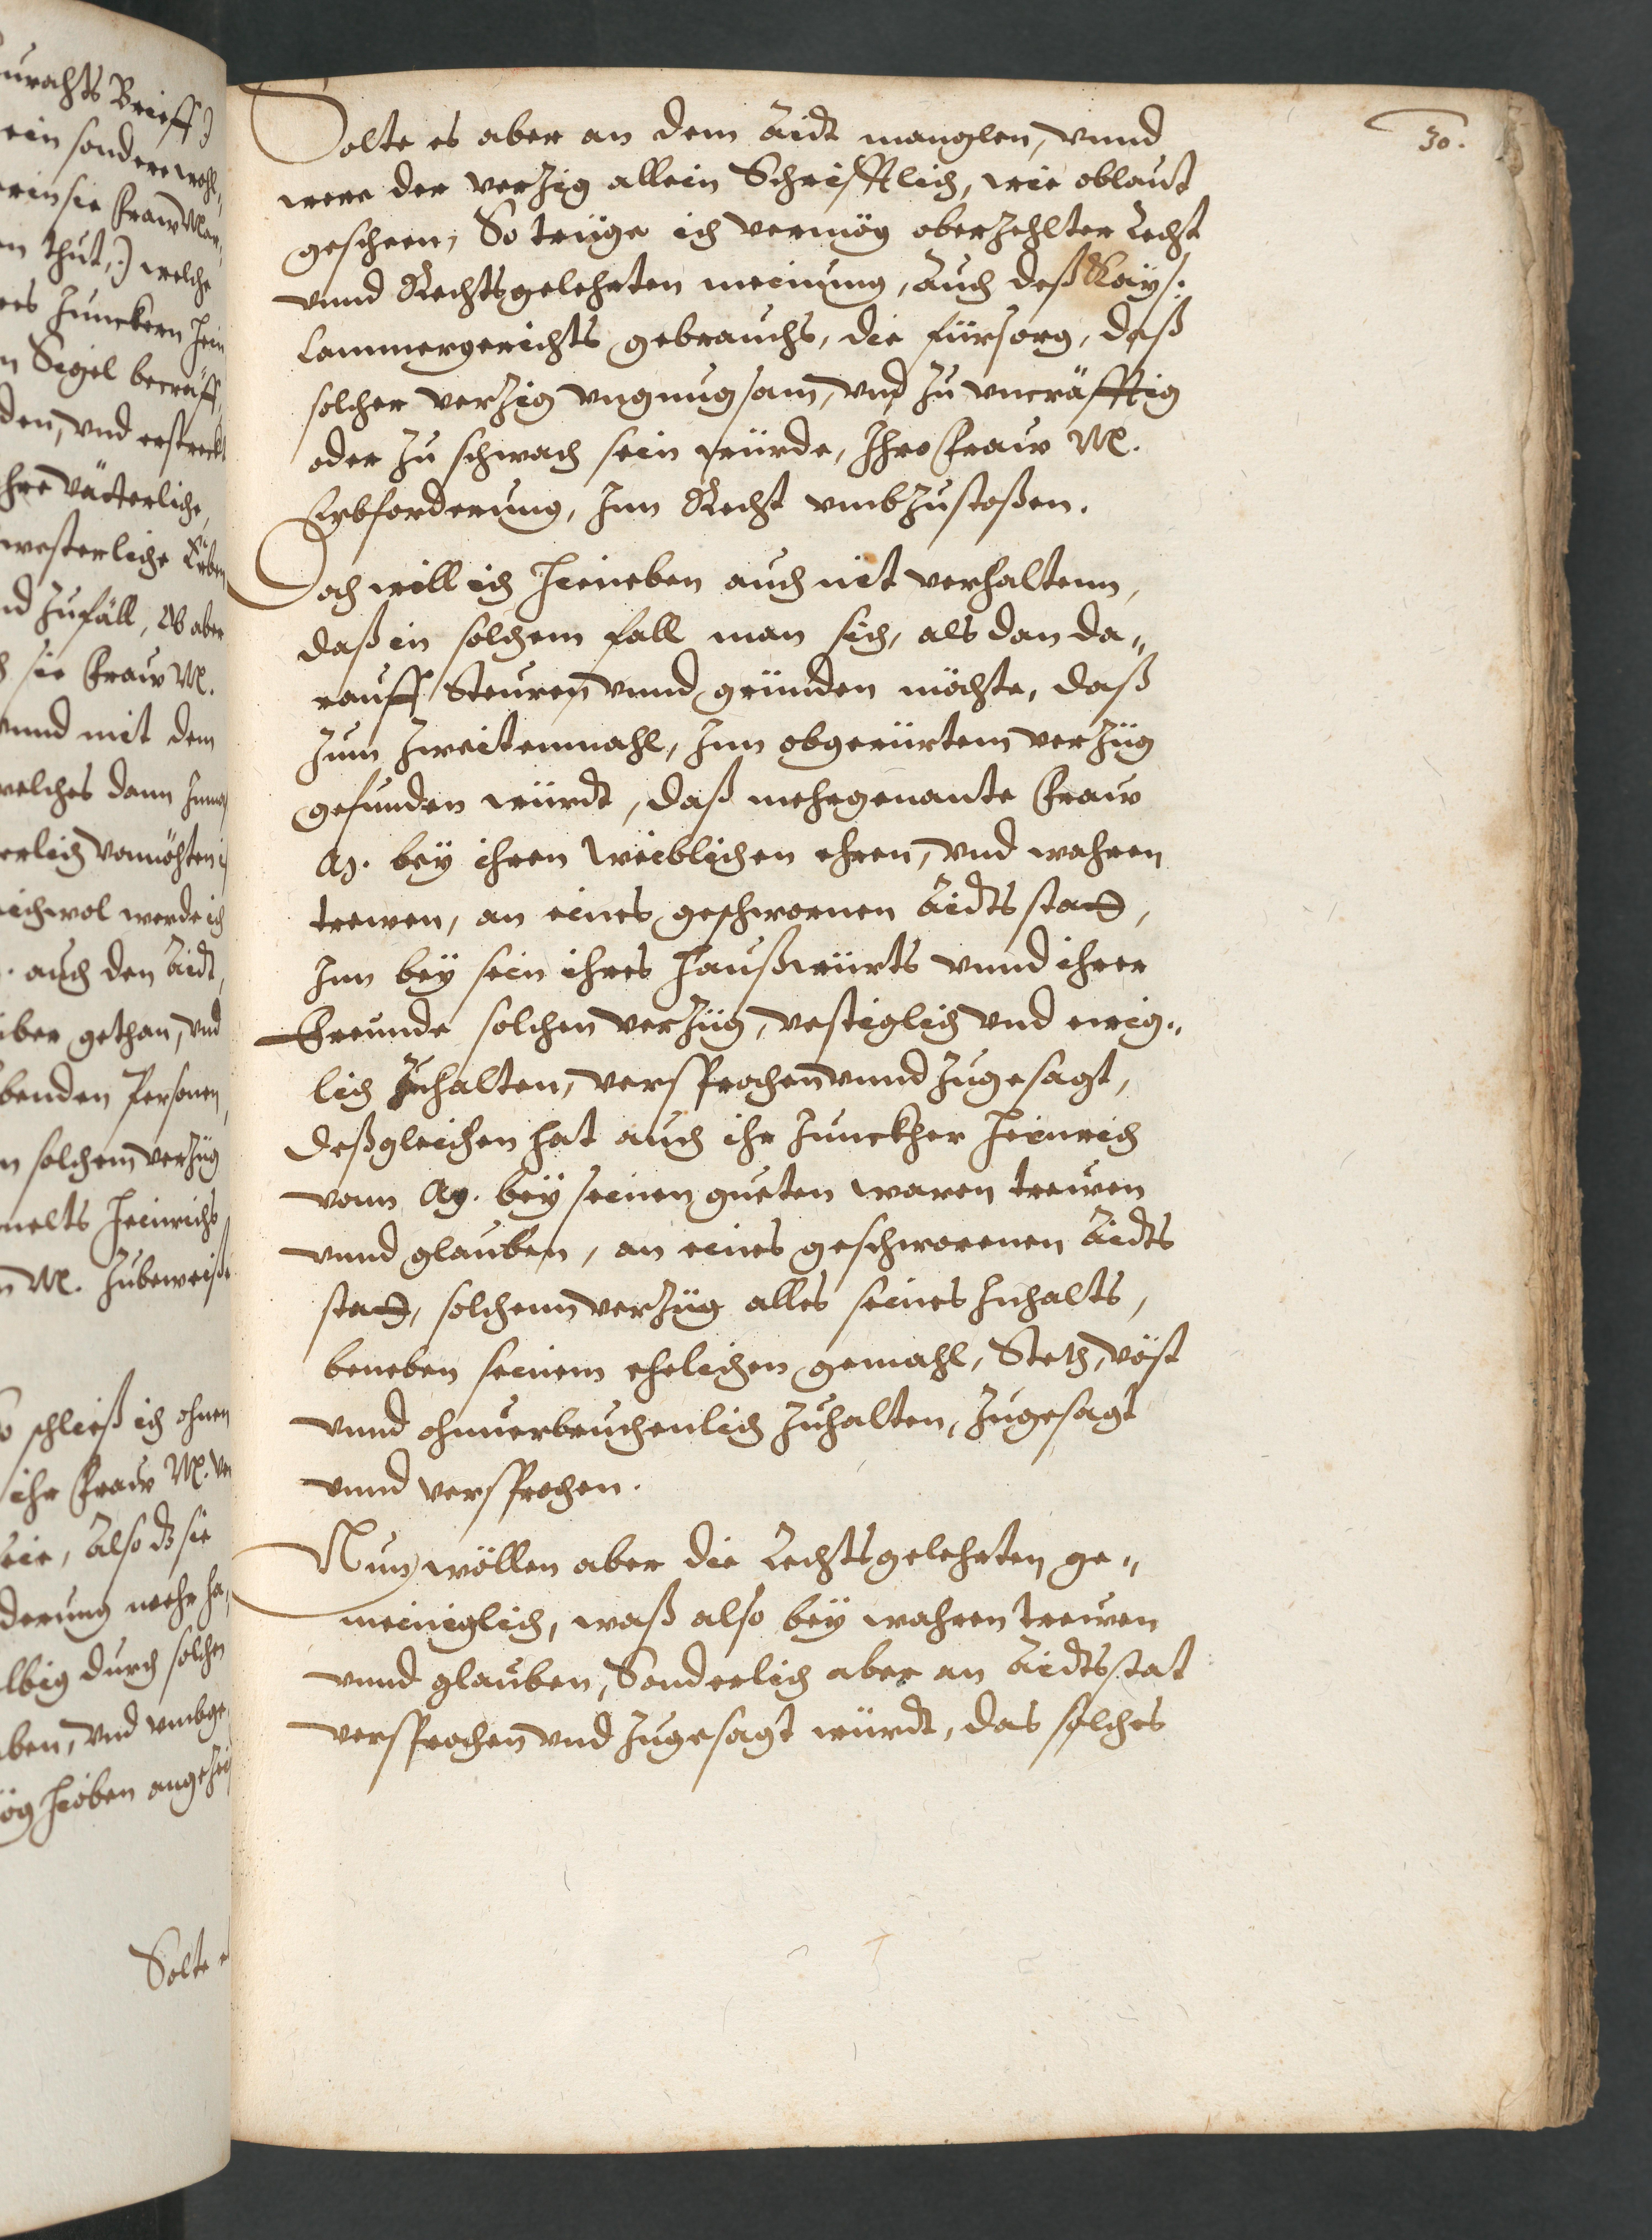 30.
Solte es aber an dem Aidt manglen, vnnd
were der verzig allein Schrifftlich, wie oblaut
gescheen, So trüge ich vermög oberzehlter Recht
vnnd Rechtsgelehrten meinung, Auch deß Kays:
Cammergerichts gebrauchs, die fürsorg, daß
solcher verzig vngnugsam, vnd zu vncräfftig
oder zu schwach sein würde, Ihro Fraw M.
Erbforderung, Inn Recht vmbzustoßen.
Doch will ich hieneben auch nit verhaltenn,
daß in solchem fall man sich, als dan da„
rauff Steuren vnnd gründen möchte, daß
zum zweitenmahl, Inn obgerürtem verzüg
gefunden würdt, daß mehrgenante Fraw
Ag. bey ihren weiblichen ehren, vnd wahren
trewen, an eines geschwornen Aidts stadt,
Inn bey sein ihres haußwürts vnnd ihrer
Freunde solchen verzüg, vestiglich vnd ewig„
lich zuhalten, versprochen vnnd zugesagt,
deßgleichen hat auch ihr Junckher Heinrich
vonn Ag. bey seinen gueten waren trewen
vnnd glauben, an eines geschworenen Aidts
stadt, solchenn verzüg alles seines Inhalts,
beneben seinem ehelichen gemahl, Steth, vöst
vnnd ohnuerbruchenlich zuhalten, zugesagt
vnnd versprochen.
Nun wöllen aber die Rechtsgelehrten ge„
meiniglich, waß also bey wahren trewen
vnnd glauben, Sonderlich aber an Aidtsstat
versprochen vnd zugesagt würdt, das solches